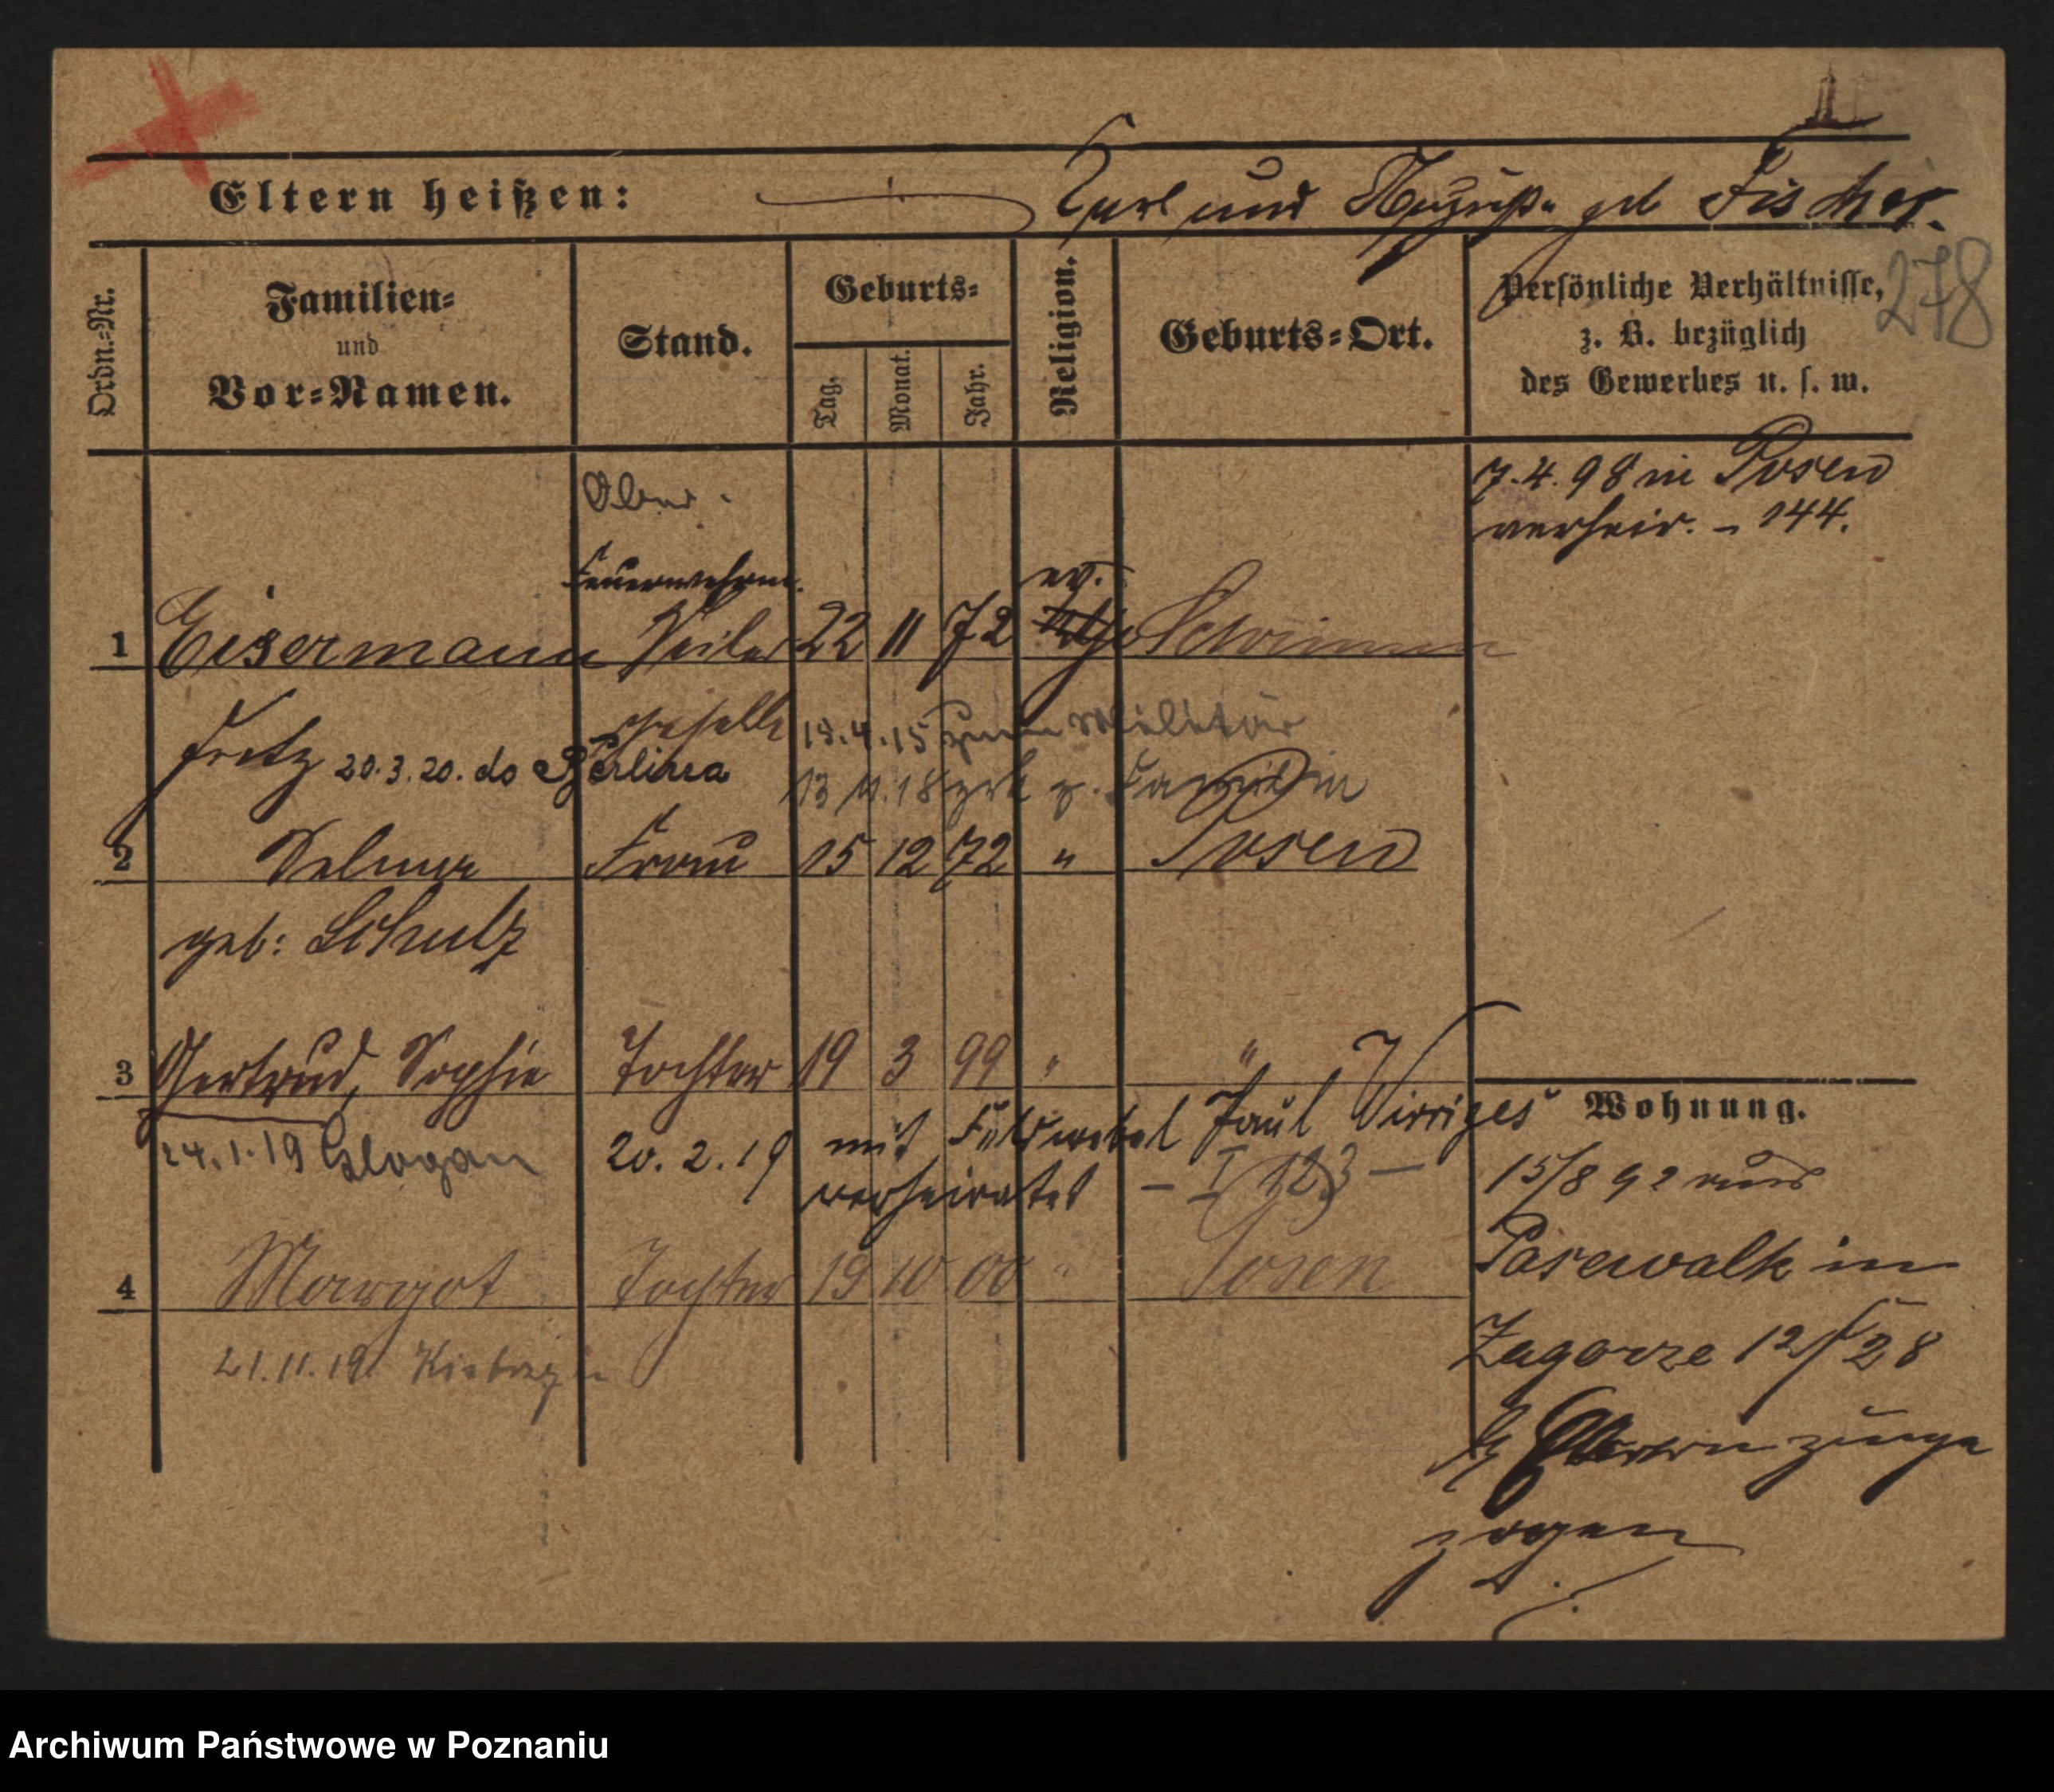 Eltern heißen: Karl und Auguste geb Fischer.
278
Ordn.=Nr.
Familien=
und
Vor=Namen.
Stand.
Geburts=
Tag.
Monat.
Jahr.
Religion.
Geburts=Ort.
Persönliche Verhältnisse,
z. B. bezüglich
des Gewerbes u. s. w.
7.4.98 in Posen
verheir. – 144.
Ober
Feuerwehrm.
ev.
1 Eisermann Seiler 22 11 72 Schwimm
Fritz geselle
.4.15 zum Militär
20.3.20. do Berlina
13 11.18 zrk z. Familie
2 Selma Frau 15 12 72 " Posen
geb: Schulz
3 Gertrud, Sophie Tochter 19 3 99 " "
24.1.19 Glogau
20.2.19 mit Feldwebel Paul Virriges
verheiratet – I 123 –
4 Margot Tochter 19 10 00 " Posen
21.11.19
Wohnung.
15/8 92 aus
Pasewalk in
Zagorze 12/
zu Eltern zuge
zogen
Archiwum Państwowe w Poznaniu